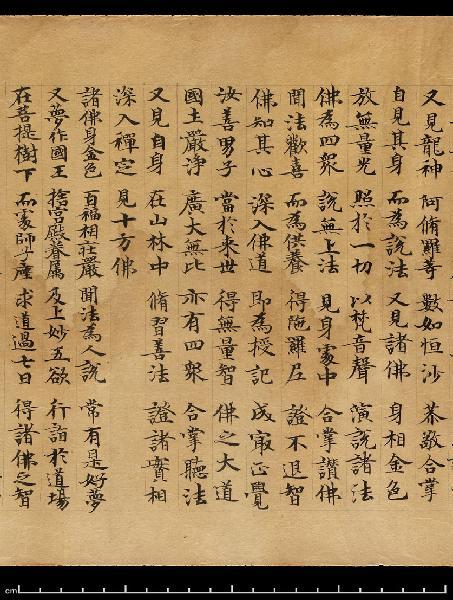 又見龍神 阿脩羅等 數如恒沙 恭敬合掌
自見其身 而為說法 又見諸佛 身相金色
放無量光 照於一切 以梵音聲 演說諸法
佛為四眾 說無上法 見身處中 合掌讚佛
聞法歡喜 而為供養 得陁羅尼 證不退智
佛知其心 深入佛道 即為授記 成冣正覺
汝善男子 當於来世 得無量智 佛之大道
國土嚴淨 廣大無比 亦有四眾 合掌聽法
又見自身 在山林中 脩習善法 證諸實相
深入禪定 見十方佛
諸佛身金色 百福相莊嚴 聞法為人說 常有是好夢
又夢作國王 捨宮殿眷属 及上妙五欲 行詣於道場
在菩提樹下 而處師子座 求道過七日 得諸佛之智
cm